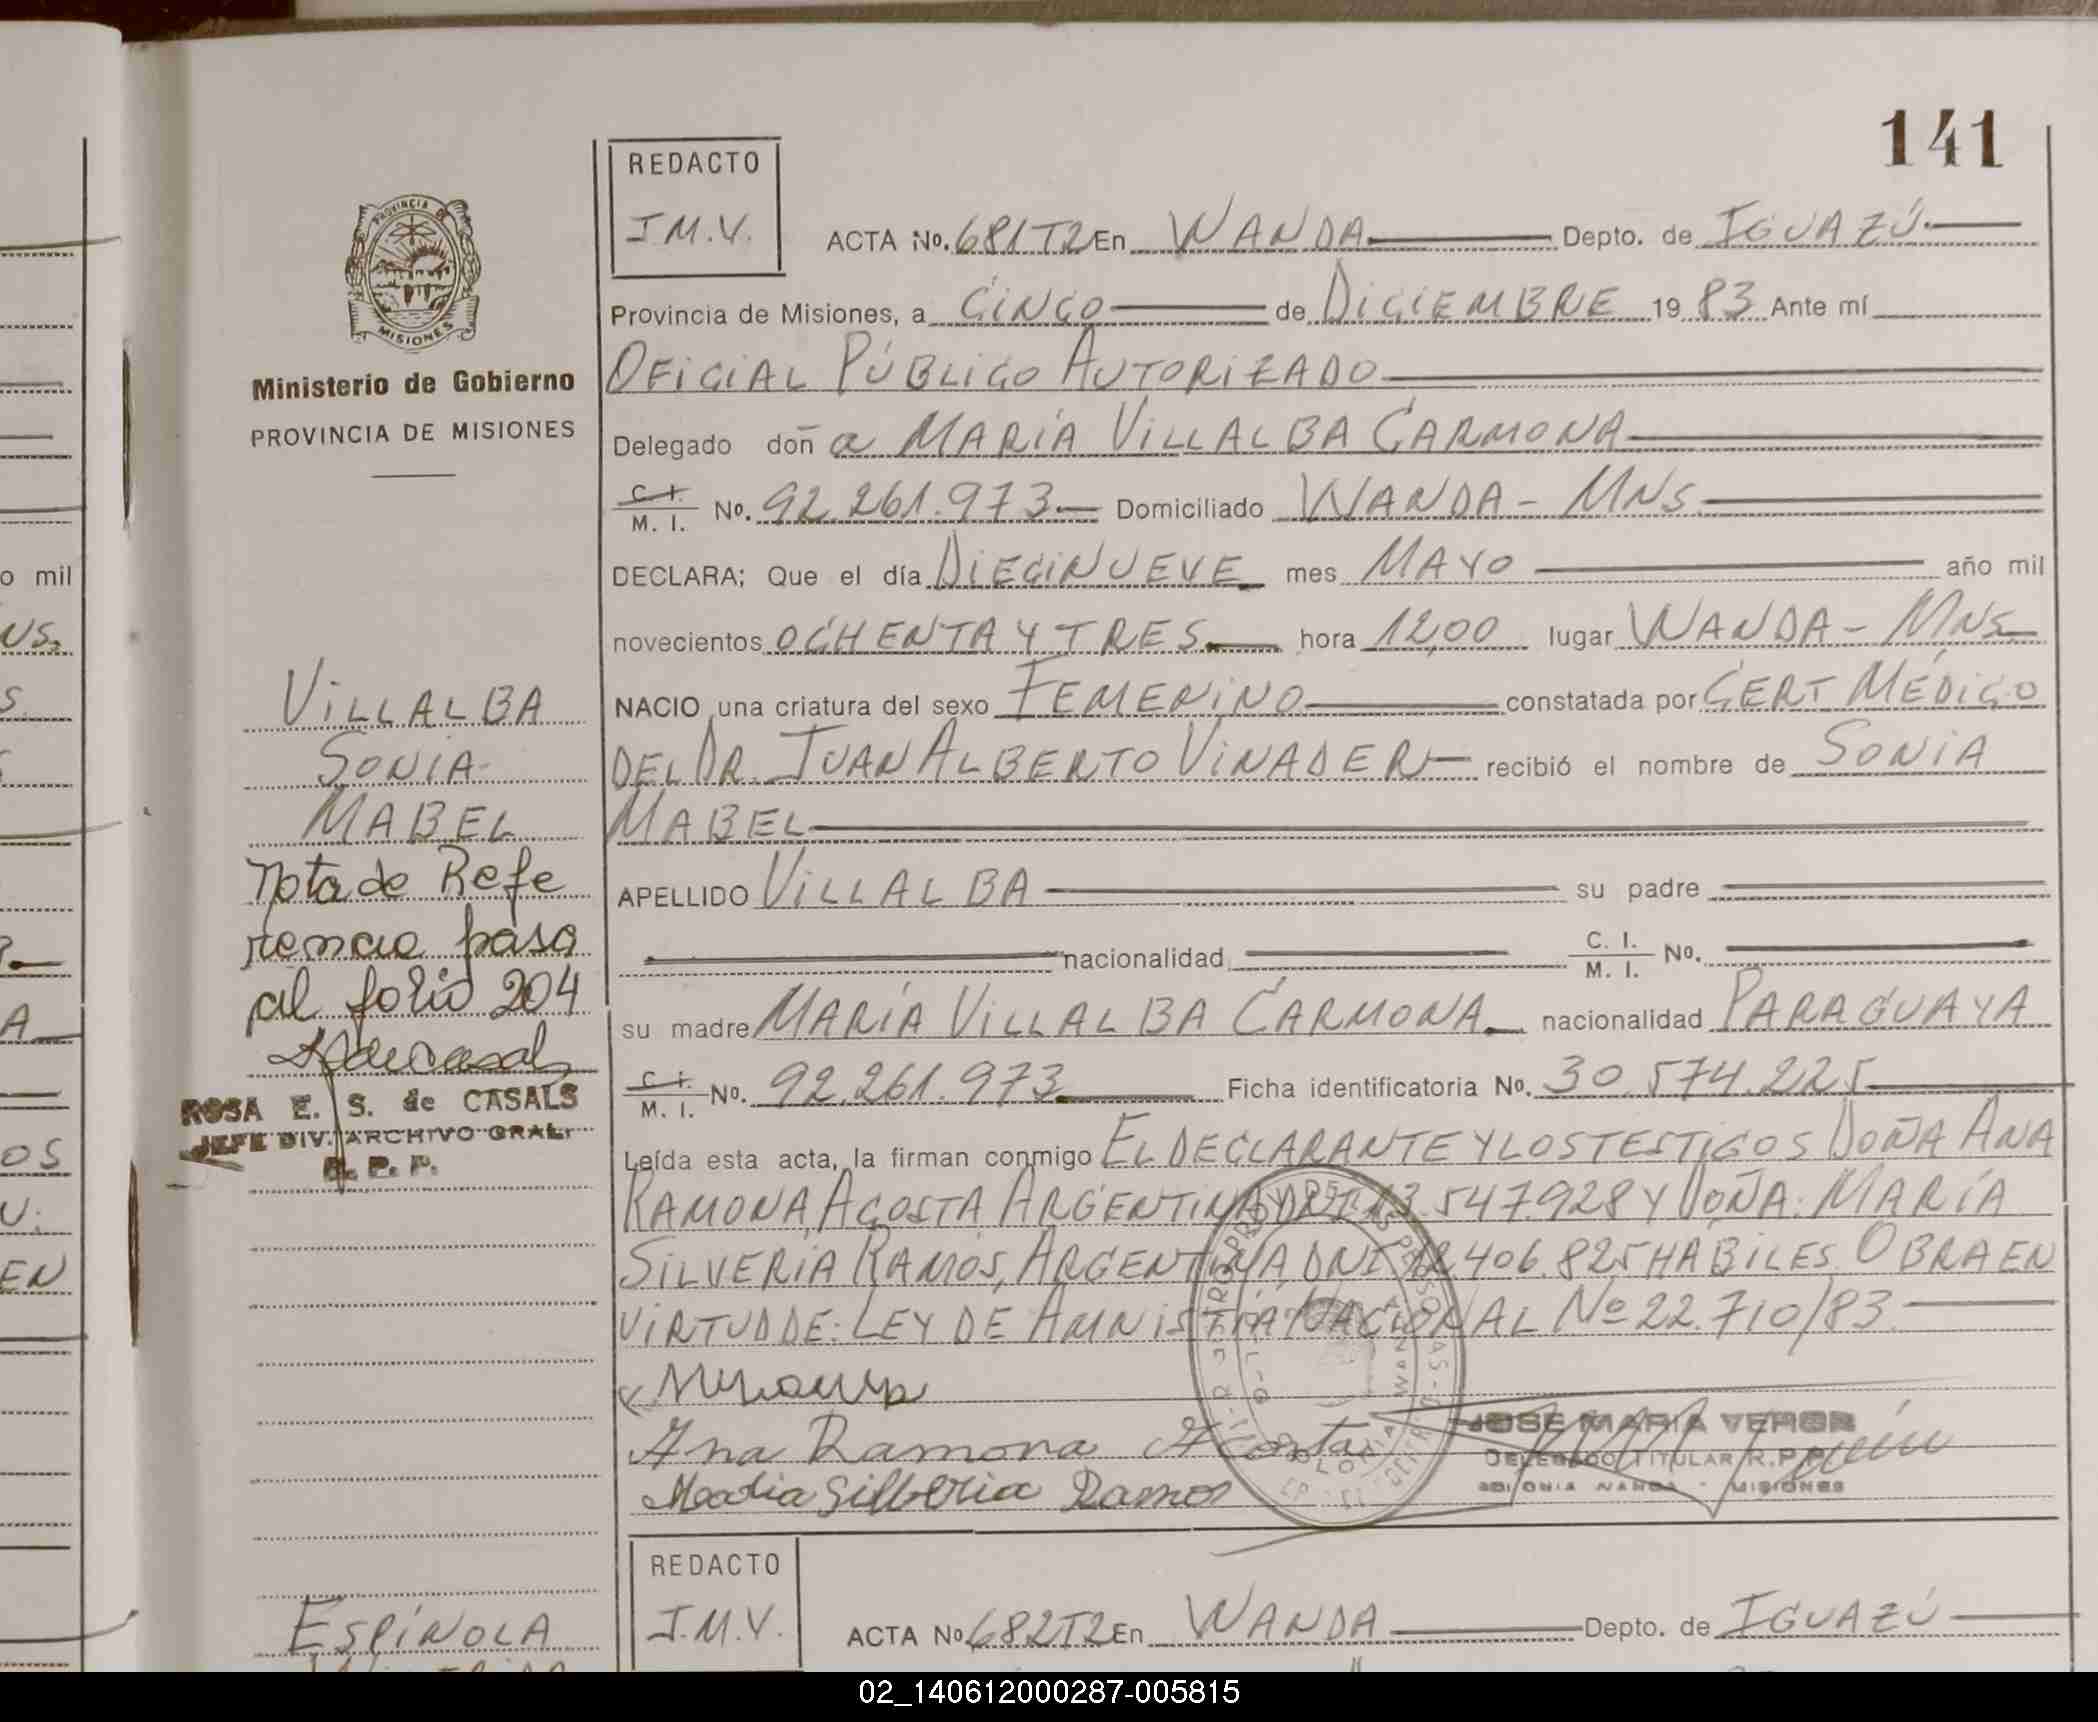 141
REDACTO
J.M.V.
ACTA No. 681T2 En WANDA Depto. de IGUAZÚ
Provincia de Misiones, a CINCO de DICIEMBRE 1983 Ante mí
OFICIAL PÚBLICO AUTORIZADO
Delegado doña MARÍA VILLALBA CARMONA
C. I. / M. I. No. 92.261.973 Domiciliado WANDA - MNS
DECLARA; Que el día DIECINUEVE mes MAYO año mil
novecientos OCHENTA Y TRES hora 12,00 lugar WANDA - MNS
NACIO una criatura del sexo FEMENINO constatada por CERT MÉDICO
DEL DR. JUAN ALBERTO VINADER recibió el nombre de SONIA
MABEL
APELLIDO VILLALBA su padre
nacionalidad C. I. / M. I. No.
su madre MARÍA VILLALBA CARMONA nacionalidad PARAGUAYA
C. I. / M. I. No. 92.261.973 Ficha identificatoria No. 30.574.225
Leída esta acta, la firman conmigo EL DECLARANTE Y LOS TESTIGOS DOÑA ANA
RAMONA ACOSTA ARGENTINA DNI 13.547.928 Y DOÑA: MARÍA
SILVERIA RAMOS, ARGENTINA, DNI 12.406.825 HABILES. OBRA EN
VIRTUD DE: LEY DE AMNISTÍA NACIONAL Nº 22.710/83.
Ana Ramona Acosta
Maria Silberia Ramos
JOSE MARIA VERON
DELEGADO TITULAR R.P.P.
COLONIA WANDA - MISIONES
PROVINCIA DE
MISIONES
Ministerio de Gobierno
PROVINCIA DE MISIONES
VILLALBA
SONIA
MABEL
Nota de Refe
rencia pasa
al folio 204
ROSA E. S. de CASALS
JEFE DIV. ARCHIVO GRAL.
R. P. P.
REDACTO
J.M.V.
ACTA No 682T2 En WANDA Depto. de IGUAZÚ
ESPÍNOLA
o mil
02_140612000287-005815